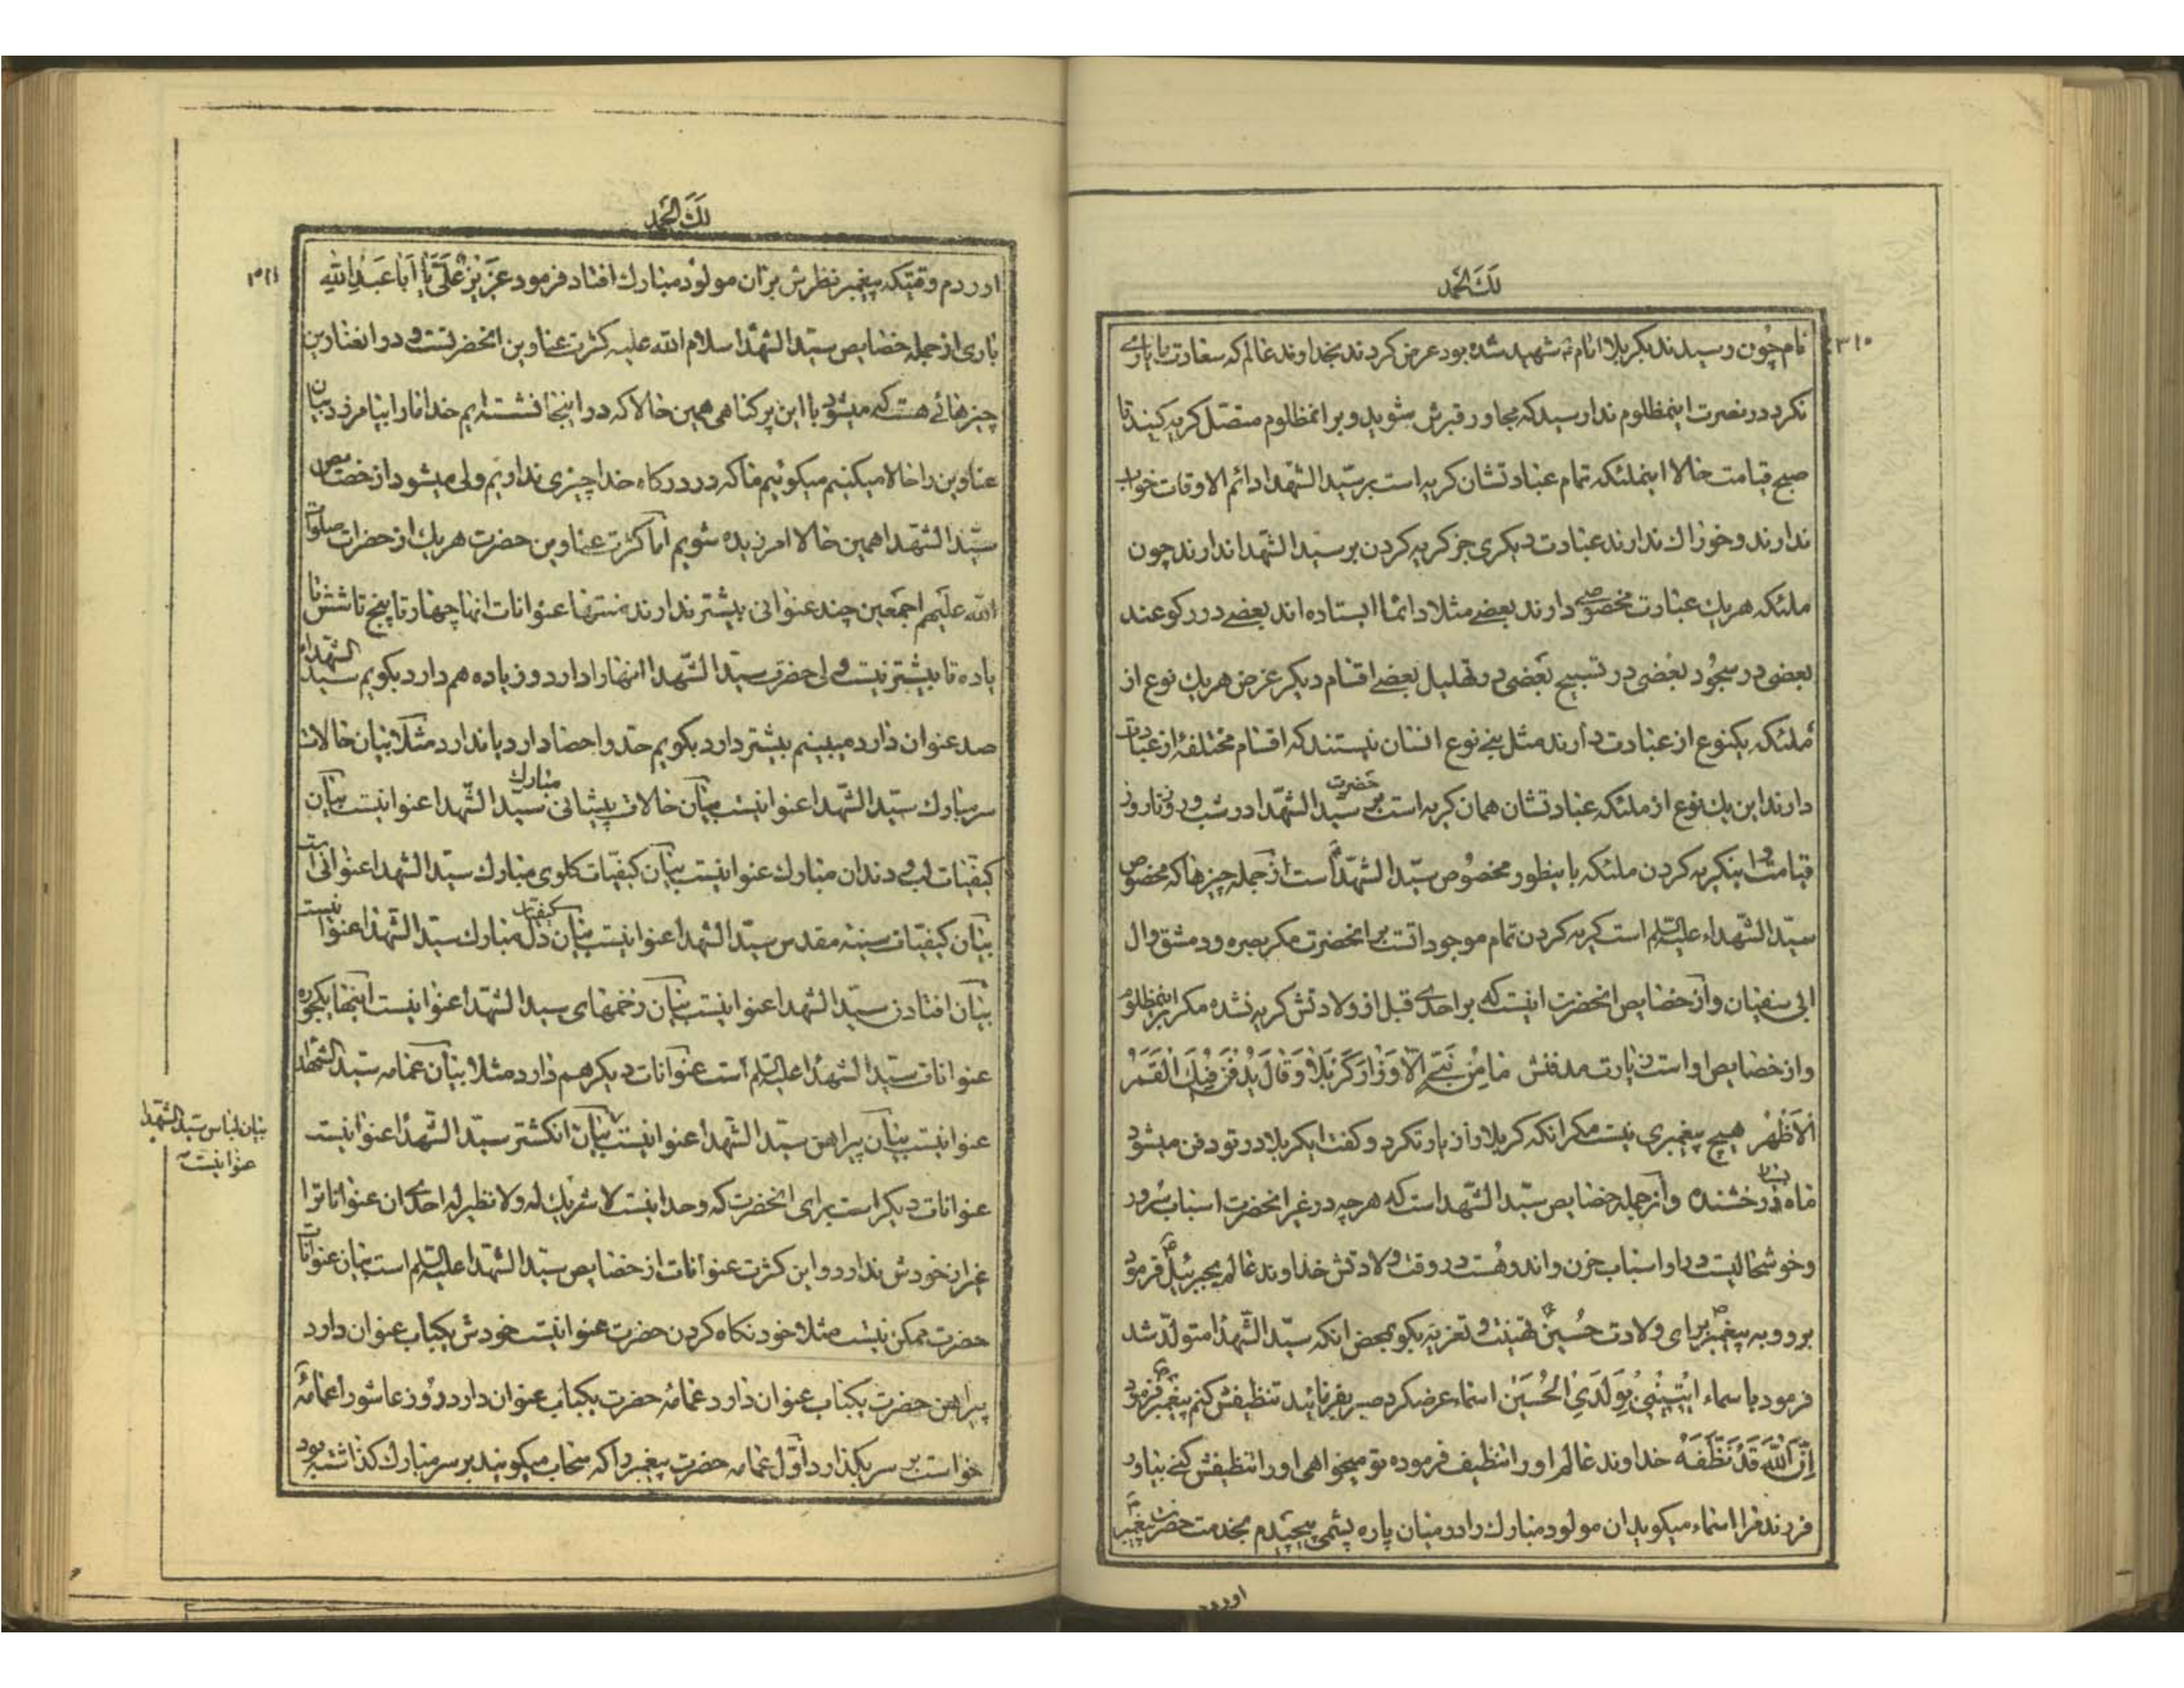 لك الحمد
۳۱۰
نام چون رسیدند بکربلا امام شهید شده بود عرض کردند بخداوند عالم که سعادت یا یاری
نکرد در نصرت اینمظلوم ندا رسید که مجاور قبرش شوید و بر انمظلوم متصل کریه کنید تا
صبح قیامت حالا اینملئکه تمام عبادتشان کریه است بر سیّد الشهدا دائم الاوقات خواب
ندارند و خوراك ندارند عبادت دیکری جز کریه کردن بر سید الشهدا ندارند چون
ملئکه هریك عبادت مخصوصی دارند بعضے مثلا دائما ایستاده اند بعضے در رکوعند
بعضی در سجود بعضی در تسبیح بعضی در تهلیل بعضے اقسام دیکر غرض هریك نوع از
ملئکه یکنوع از عبادت دارند مثل بنے نوع انسان نیستند که اقسام مختلفه از عبادت
دارند این یك نوع از ملئکه عبادتشان همان کریه است بر حضرت سید الشهدا در شب و روز تا روز
قیامت و اینکریه کردن ملئکه باینطور مخصوص سیّد الشهدا است از جمله چیزها که مخصوص
سیّد الشهداء علیه السلام است کریه کردن تمام موجوداتست بر انحضرت مکر بصره و دمشق و ال
ابی سفیان و از خصایص انحضرت اینست که بر احدے قبل از ولادتش کریه نشده مکر بر اینمظلوم
و از خصایص او است زیارت مدفنش مَا مِنْ نَبِیٍّ اِلّا وَزَارَ کَرْبَلَا وَقَالَ یُدْفَنُ فِیْكِ الْقَمَرُ
الْاَظْهَرُ هیچ پیغمبری نیست مکر انکه کربلا را زیارت کرد و کفت ایکربلا در تو دفن میشود
ماه درخشنده و از جمله خصایص سیّد الشهدا است که هرچه در غیر انحضرت اسباب سرور
و خوشحالیست در او اسباب حزن و اندوهست در وقت ولادتش خداوند عالم بجبرئیل فرمود
برو و به پیغمبر برای ولادت حسین تهنیت و تعزیه بکو بمحض انکه سیّد الشهدا متولّد شد
فرمود یا اسماء ایْتِیْنِیْ بِوَلَدِیَ الْحُسَیْن اسماء عرضکرد صبر بفرمائید تنظیفش کنم پیغمبر فرمود
اِنَّ اللّٰهَ قَدْ نَظَّفَهُ خداوند عالم او را تنظیف فرموده تو میخواهی او را تنظیفش کنے بیاور
فرزند مرا اسماء میکوید ان مولود مبارك را در میان پاره پشمی پیچیدم بخدمت حضرت پیغمبر
اورد
لك الحمد
۳۱۱
اوردم وقتیکه پیغمبر نظرش بر آن مولود مبارك افتاد فرمود عَزِیْزٌ عَلَیَّ یَا اَبَا عَبْدِ اللّٰهِ
باری از جمله خصایص سیّد الشهدا سلام الله علیه کثرت عناوین انحضرتست و در انعناوین
چیزهائے هست که میشود با این پر کناهی همین حالا که در اینجا نشسته ایم خدا ما را بیامرزد بیان
عناوین را حالا میکنیم میکوئیم ما که در درکاه خدا چیزی نداریم ولی میشود از خصایص
سیّد الشهدا همین حالا امرزیده شویم امّا کثرت عناوین حضرت هریك از حضرات صلوات
الله علیهم اجمعین چند عنوانی بیشتر ندارند منتها عنوانات انها چهار تا پنج تا شش تا
یا ده تا بیشتر نیست ولی حضرت سیّد الشهدا انها را دارد و زیاده هم دارد بکویم سیّد الشهداء
صد عنوان دارد میبینیم بیشتر دارد بکویم حد و احصا دارد یا ندارد مثلا بیان حالات
سر مبارك سیّد الشهدا عنوانیست بیان حالات پیشانی مبارك سید الشهدا عنوانیست بیان
کیفیّات لب و دندان مبارك عنوانیست بیان کیفیّات کلوی مبارك سیّد الشهدا عنوانی است
بیان کیفیّات سینه مقدس سیّد الشهدا عنوانیست بیان کیفیّات دل مبارك سیّد الشهدا عنوانیست
بیان افتادن سیّد الشهدا عنوانیست بیان زخمهای سید الشهدا عنوانیست اینها یکجوره
عنوانات سیّد الشهدا علیه السلام است عنوانات دیکر هم دارد مثلا بیان عمامه سیّد الشهداء
عنوانیست بیان پیراهن سیّد الشهدا عنوانیست بیان انکشتر سیّد الشهدا عنوانیست
بیان لباس سیّد الشهدا
عنوانیست
عنوانات دیکر است برای انحضرت که وحدانیست لا شریك له و لا نظیر له احدے ان عنوانات را
غیر از خودش ندارد و این کثرت عنوانات از خصایص سیّد الشهدا علیه السلام است بیان عنوانات
حضرت ممکن نیست مثلا خود نکاه کردن حضرت عنوانیست خودش یکباب عنوان دارد
پیراهن حضرت یکباب عنوان دارد عمامه حضرت یکباب عنوان دارد روز عاشورا عمامهٔ
خواست بر سر بکذارد اوّل عمامه حضرت پیغمبر را که سحاب میکویند بر سر مبارك کذاشته بود